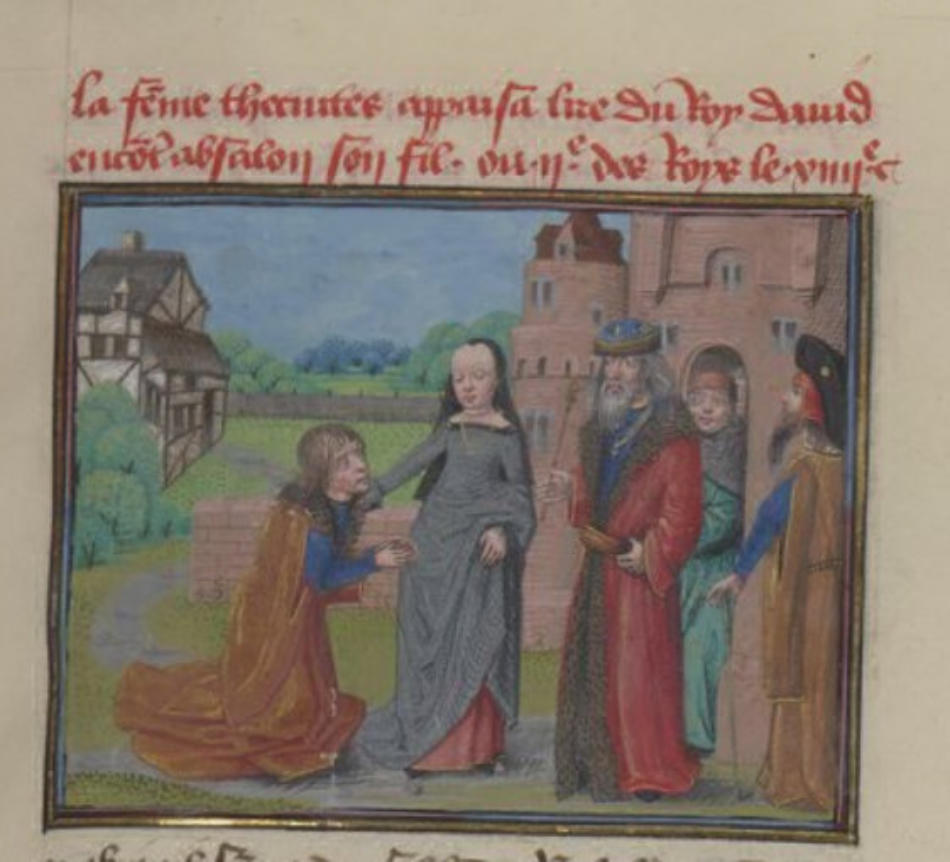 la fēme thecuites appaisa lire du Roy dauid
encōt absalon son fil. ou .ii.e des Roys le .xiiii.e c